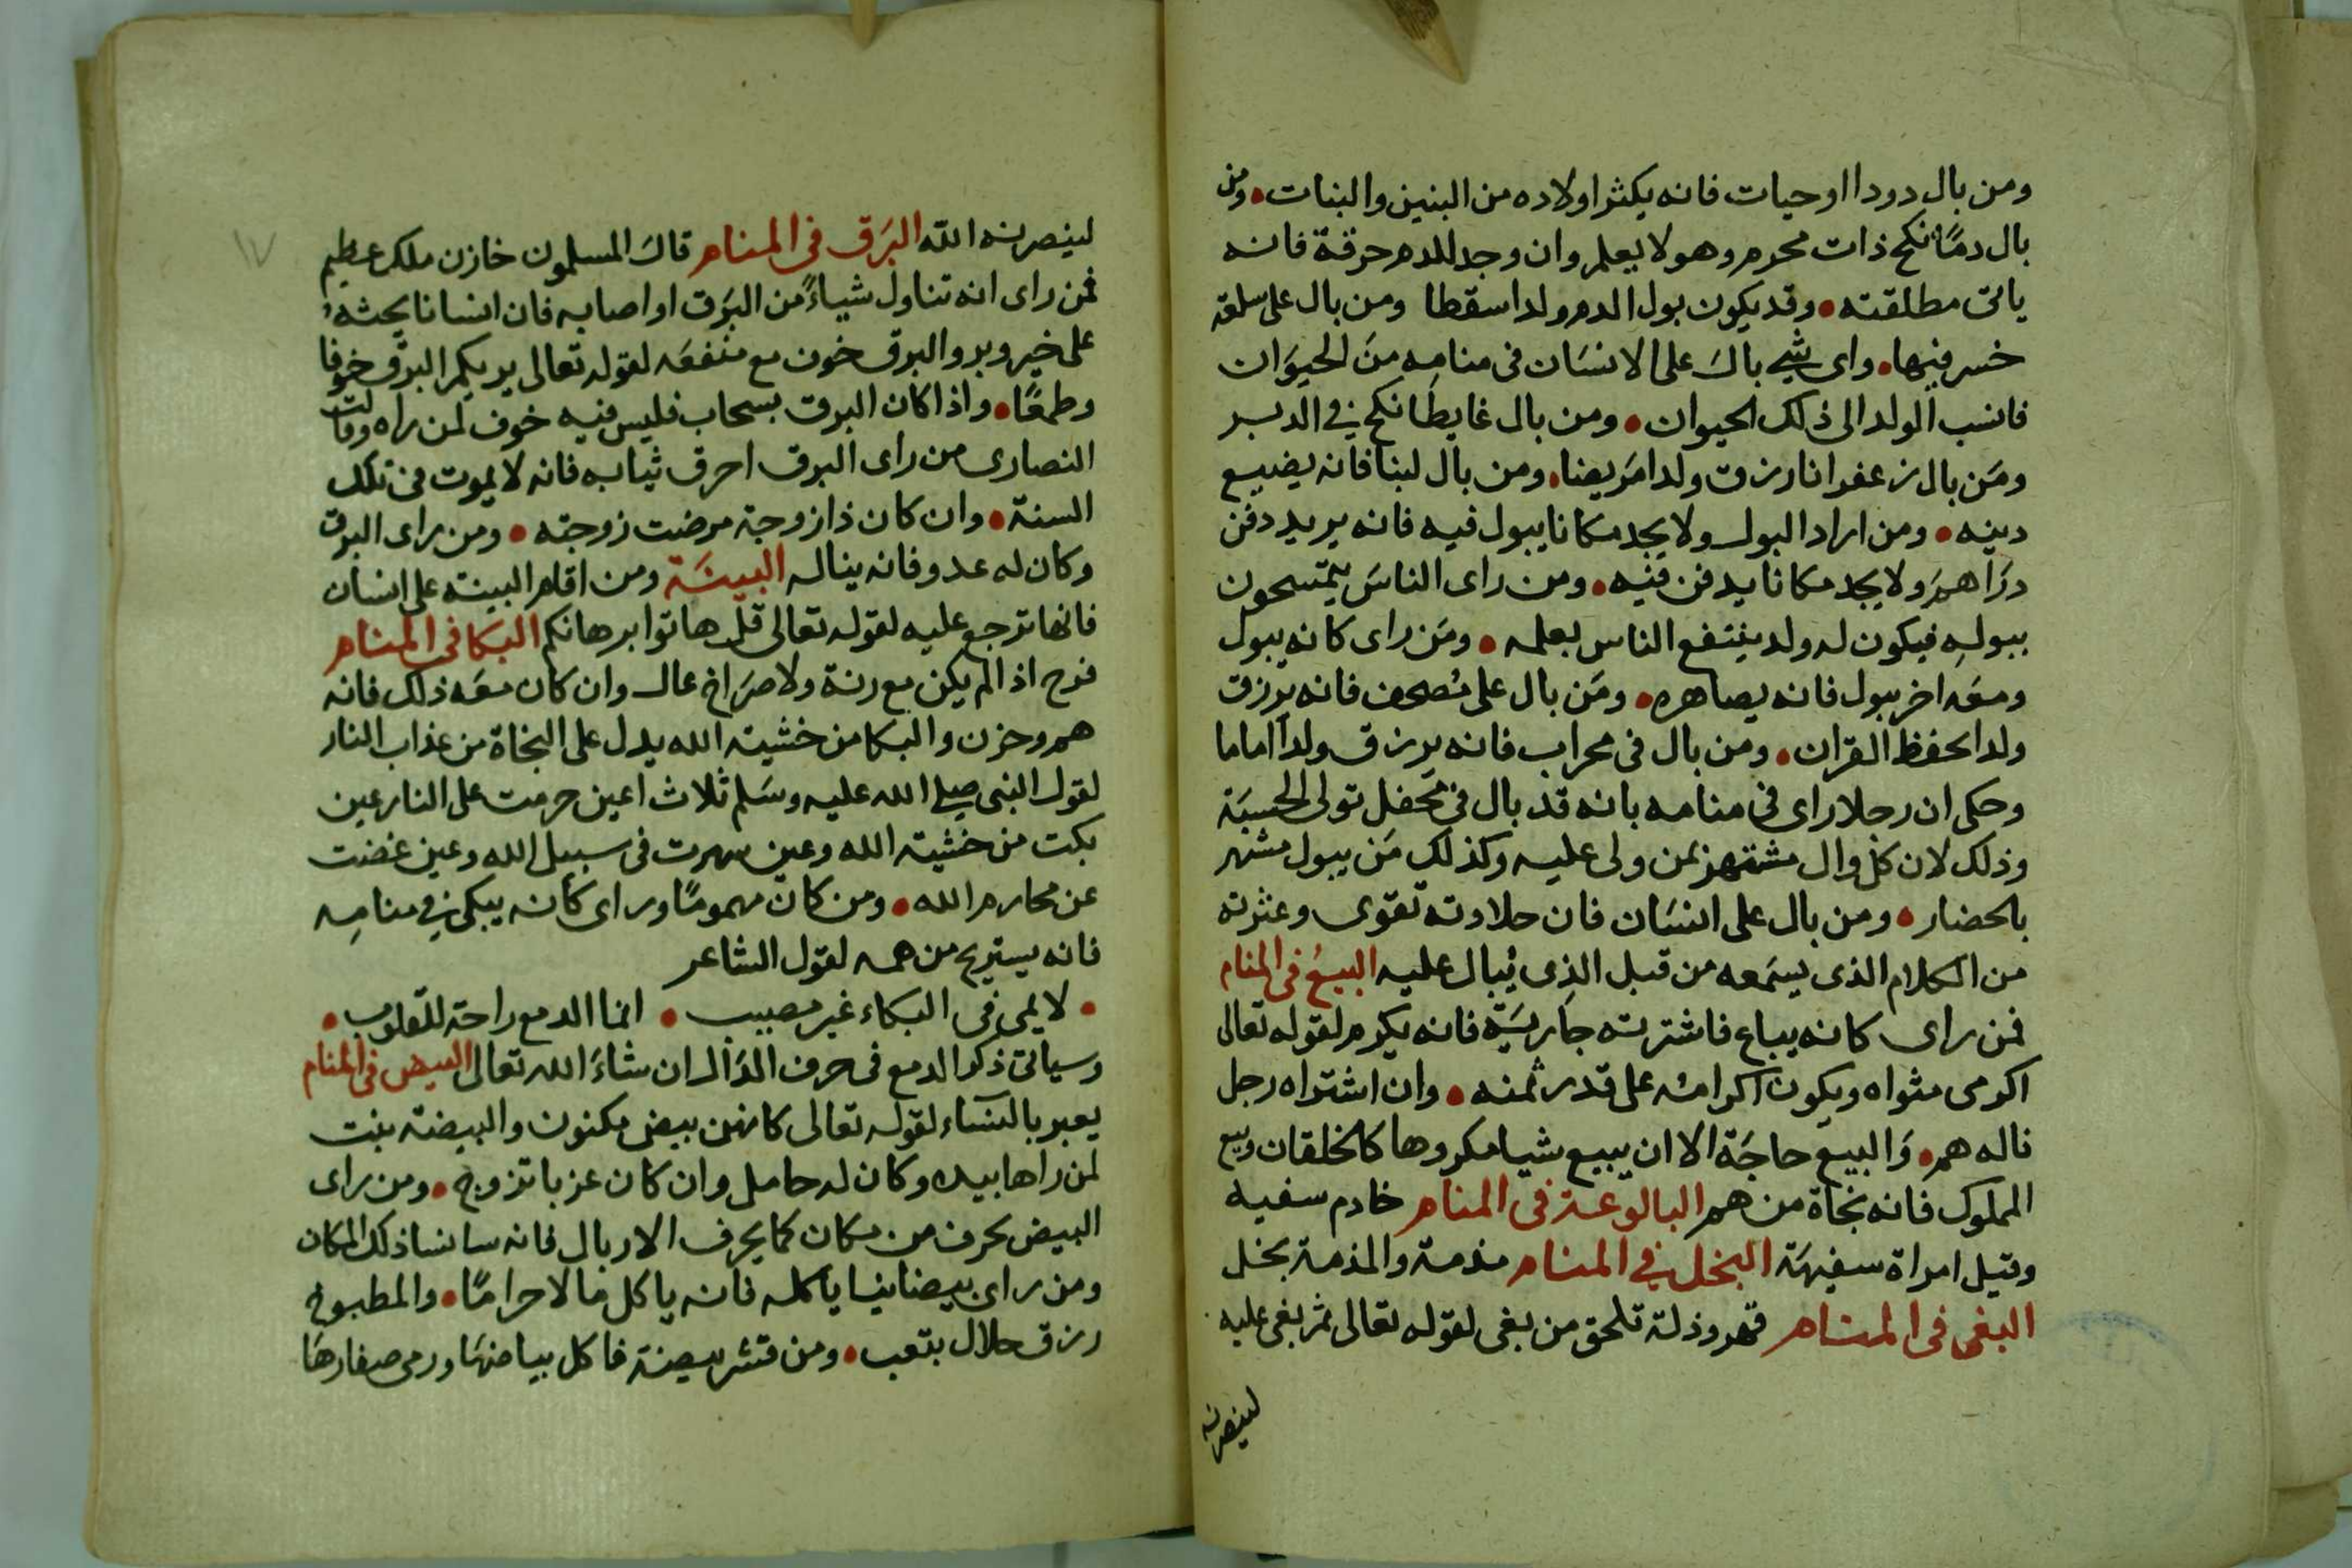 ومن بال دودا اوحيات فانه يكثر اولاده من البنين والبنات • ومن
بال دمًا نكح ذات محرم وهو لا يعلم وان وجد للدم حرقة فانه
ياتى مطلقته • وقد يكون بول الدم ولدا سقطا ومن بال على سلعة
خسر فيها • واى شي بال على الانسان فى منامه من الحيوان
فانسب الولد الى ذلك الحيوان • ومن بال غايطا نكح في الدبر
ومن بال زعفرانا رزق ولدا مريضا • ومن بال لبنا فانه يضيع
دينه • ومن اراد البول ولا يجد مكانا يبول فيه فانه يريد دفن
دراهم ولا يجد مكانا يدفن فيه • ومن راى الناس يتمسحون
ببوله فيكون له ولد ينتفع الناس بعلمه • ومن راى كانه يبول
ومعه اخر يبول فانه يصاهره • ومن بال على مصحف فانه يرزق
ولدا يحفظ القران • ومن بال فى محراب فانه يرزق ولدا اماما
وحكى ان رجلا راى فى منامه بانه قد بال فى محفل تولى الحسبة
وذلك لان كل وال مشتهر بمن ولى عليه وكذلك من يبول مشهر
بالحضار • ومن بال على انسان فان حلاوته تقوى وعثرته
من الكلام الذى يسمعه من قبل الذى يُبال عليه البيع فى المنام
فمن راى كانه يباع فاشترته جارية فانه يكرم لقوله تعالى
اكرمى مثواه ويكون اكرامه على قدر ثمنه • وان اشتراه رجل
ناله هم • والبيع حاجة الا ان يبيع شيا مكروها كالخلقان وبيع
المملوك فانه نجاة من هم البالوعة فى المنام خادم سفيه
وقيل امراة سفيهة البخل في المنام مذمة والمذمة بخل
البغى فى المنام قهر وذلة تلحق من بغى لقوله تعالى ثم بغى عليه
لينصرنه
١٧
لينصرنه الله البَرَق فى المنام قال المسلمون خازن ملك عظيم
فمن راى انه تناول شياءً من البَرَق او اصابه فان انسانا يحثه
على خير وبر والبرق خوف مع منفعه لقوله تعالى يريكم البرق خوفا
وطمعًا • واذا كان البرق بسحاب فليس فيه خوف لمن راه وقالت
النصارى من راى البرق احرق ثيابه فانه لا يموت فى تلك
السنة • وان كان ذا زوجة مرضت زوجته • ومن راى البرق
وكان له عدو فانه يناله البينَة ومن اقام البينة على انسان
فانها ترجع عليه لقوله تعالى قل هاتوا برهانكم البكا فى المنام
فرح اذا لم يكن مع رنة ولا صراخ عال وان كان معه ذلك فانه
هم وحزن والبكا من خشية الله يدل على النجاة من عذاب النار
لقول النبى صلى الله عليه وسلم ثلاث اعين حرمت على النار عين
بكت من خشية الله وعين سهرت فى سبيل الله وعين غضت
عن محارم الله • ومن كان مهمومًا وراى كانه يبكى في منامه
فانه يستريح من همه لقول الشاعر
• لا يمى فى البكاء غير مصيب • انما الدمع راحة للقلوب •
وسياتى ذكر الدمع فى حرف الدال ان شاء الله تعالى البيض فى المنام
يعبر بالنساء لقوله تعالى كانهن بيض مكنون والبيضة بنت
لمن راها بيده وكان له حامل وان كان عزبا تزوج • ومن راى
البيض يجرف من مكان كما يجرف الاربال فانه سا نسا ذلك المكان
ومن راى بيضا نيا ياكله فانه ياكل مالا حرامًا • والمطبوخ
رزق حلال بتعب • ومن قشر بيضة فاكل بياضها ورمى صفارها